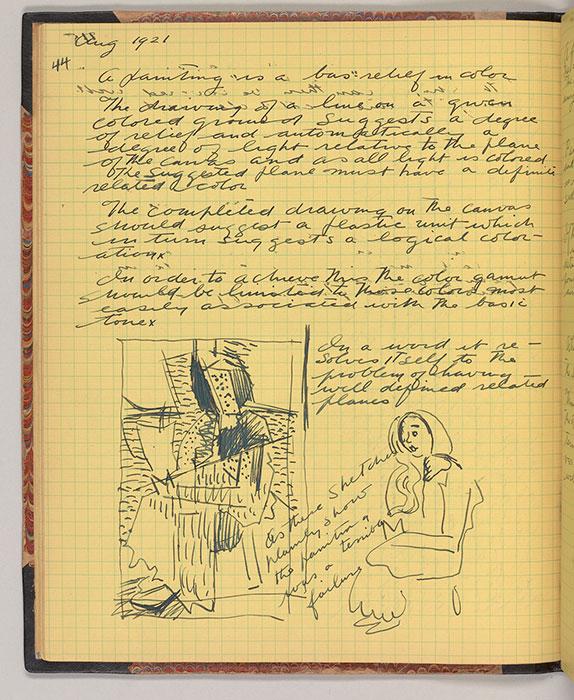 Aug 1921
44
A painting is a bas relief in color
The drawing of a line on a given
colored ground suggests a degree
of relief and automatically a
degree of light relative to the plane
of the canvas and as all light is colored
the suggested plane must have a definite
related color
The completed drawing on the canvas
should suggest a plastic unit which
in turn suggests a logical color-
ation x
In order to achieve this the color gamut
should be limited to those colors most
easily associated with the basic
tone x
In a word it re-
solves itself to the
problem of having
well defined related
planes
As these sketches
plainly show
the painting
was a terrible
failure